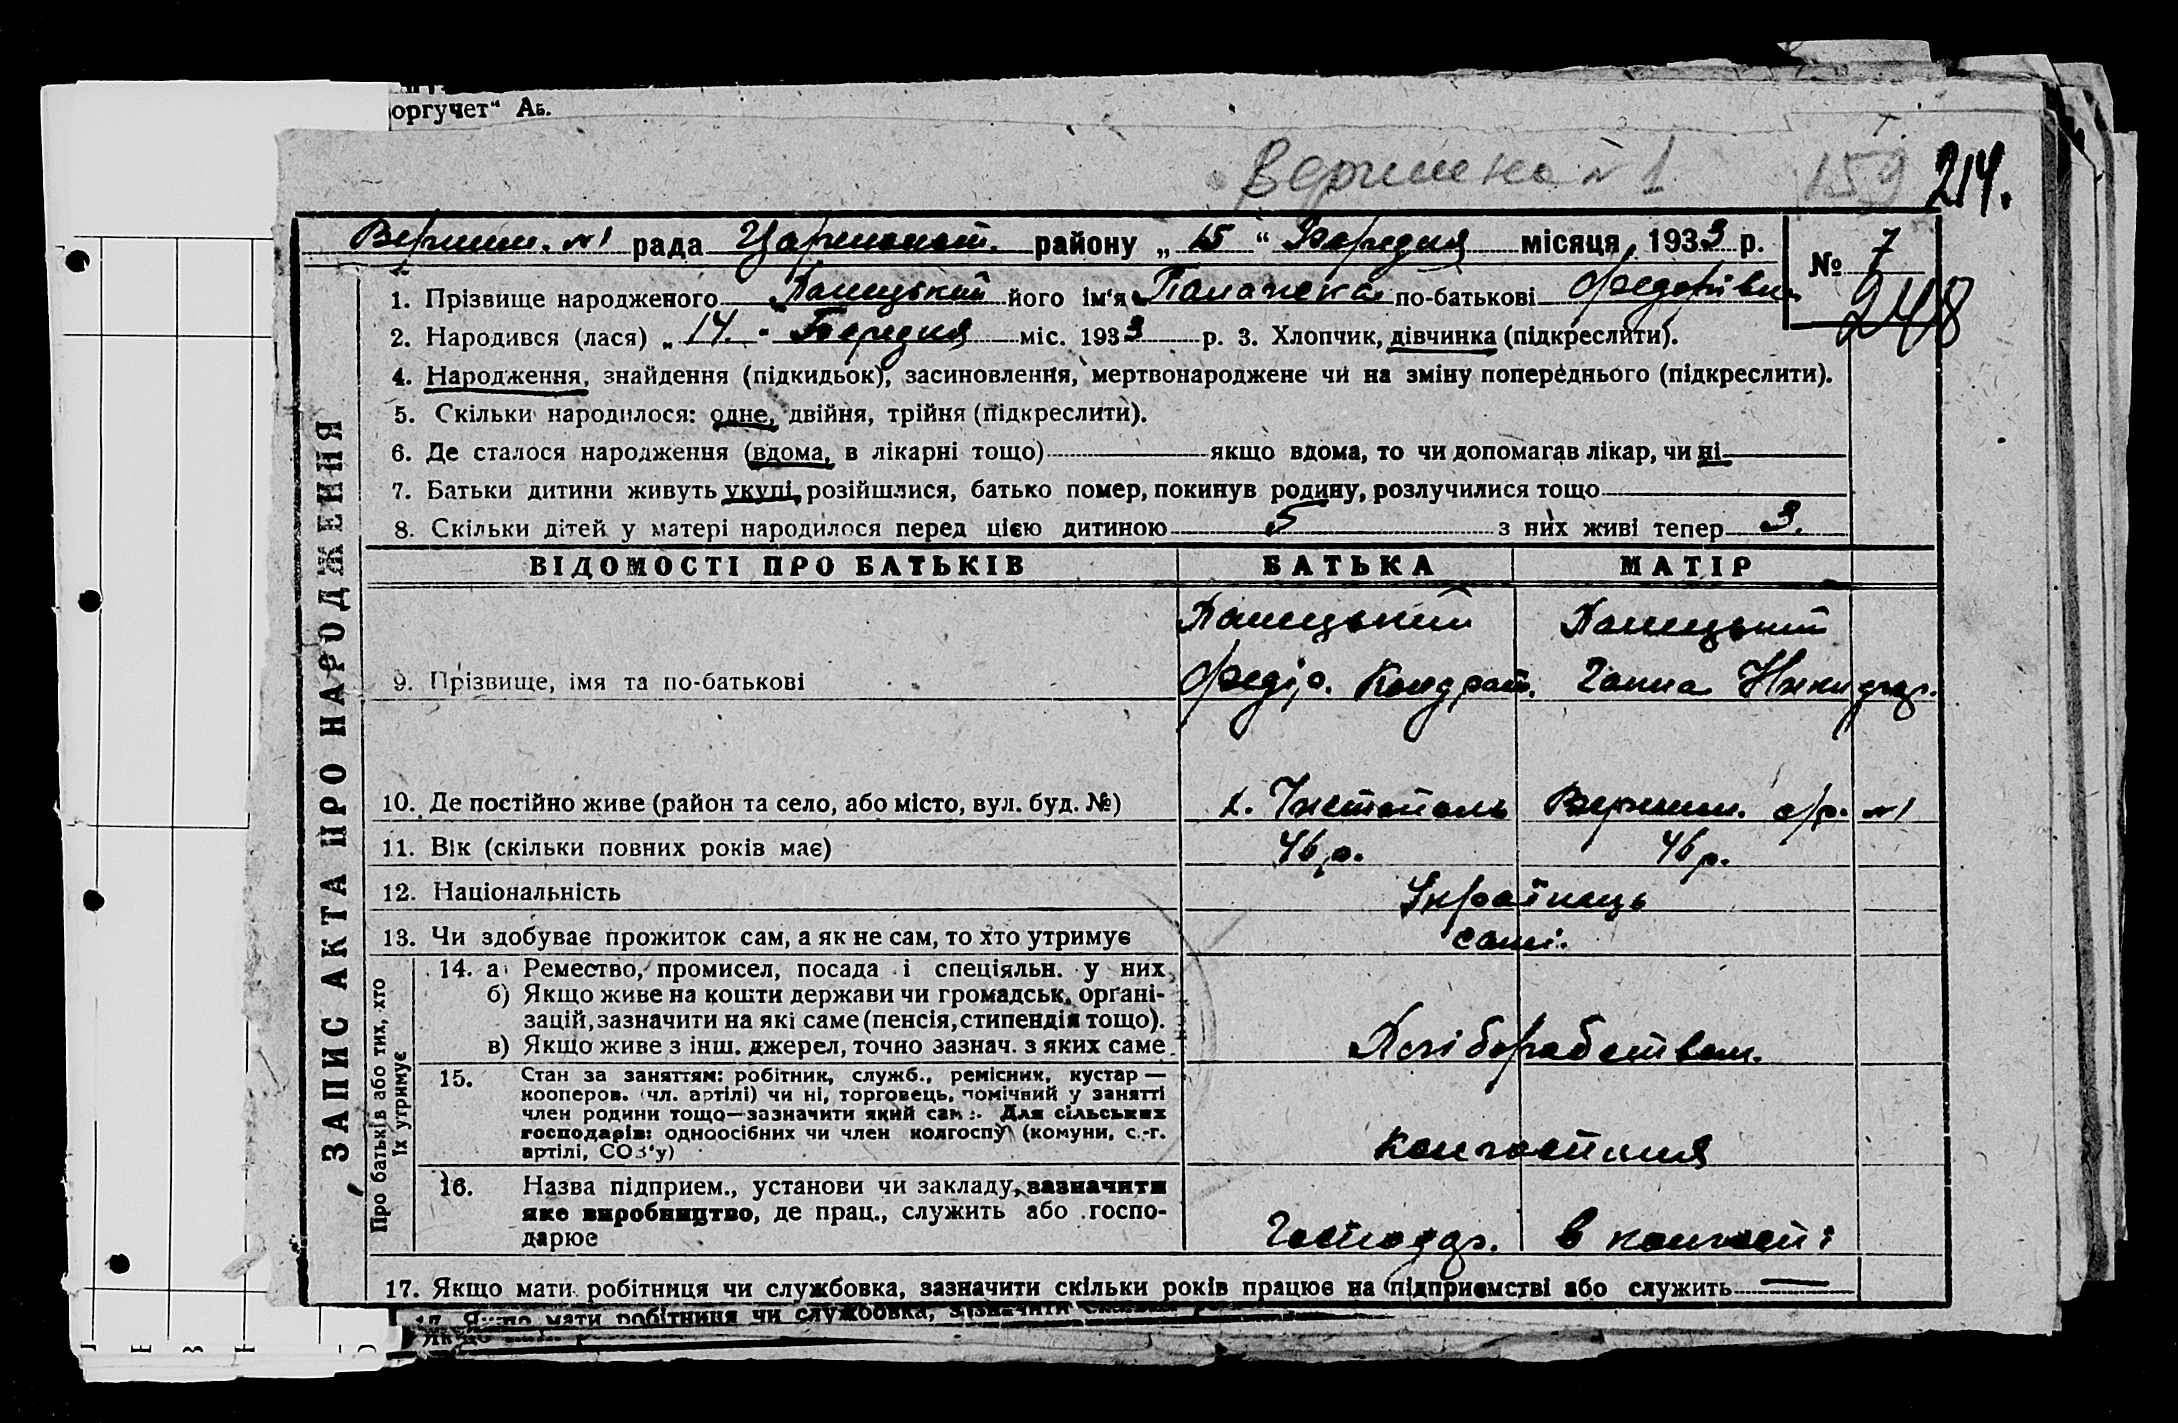 оргучет" Аб.
Вершина №1 159 214.
Вершин. №1 рада Царичанськ. району „ 15 “ Березня місяця, 1933 р. № 7
248
1. Прізвище народженого його ім'я Палажка по-батькові Федорівна
2. Народився (лася) „ 14. " Березня міс. 1933 р. 3. Хлопчик, дівчинка (підкреслити).
4. Народження, знайдення (підкидьок), засиновлення, мертвонароджене чи на зміну попереднього (підкреслити).
5. Скільки народилося: одне, двійня, трійня (підкреслити).
6. Де сталося народження (вдома, в лікарні тощо) якщо вдома, то чи допомагав лікар, чи ні
7. Батьки дитини живуть укупі, розійшлися, батько помер, покинув родину, розлучилися тощо
8. Скільки дітей у матері народилося перед цією дитиною 5 з них живі тепер 3.
ЗАПИС АКТА ПРО НАРОДЖЕННЯ
ВІДОМОСТІ ПРО БАТЬКІВ БАТЬКА МАТІР
9. Прізвище, імя та по-батькові Федір. Кондрат. Ганна Никифор.
10. Де постійно живе (район та село, або місто, вул. буд. №) х. Чистополь Вершин. с/р. №1
11. Вік (скільки повних років має) 46 р. 46 р.
12. Національність Українець
13. Чи здобуває прожиток сам, а як не сам, то хто утримує самі.
Про батьків або тих, хто
їх утримує
14. а) Ремество, промисел, посада і специяльн. у них
б) Якщо живе на кошти держави чи громадськ. органі-
зацій, зазначити на які саме (пенсія, стипендія тощо).
в) Якщо живе з інш. джерел, точно зазнач. з яких саме Хліборобством.
15. Стан за заняттям: робітник, служб., ремісник, кустар —
кооперов. (чл. артілі) чи ні, торговець, помічний у занятті
член родини тощо—зазначити який сам. Для сільських
господарів: одноосібних чи член колгоспу (комуни, с.-г.
артілі, СОЗ'у) колгоспники
16. Назва підприєм., установи чи закладу, зазначити
яке виробництво, де прац., служить або госпо-
дарює Господар. в колгоспі
17. Якщо мати робітниця чи службовка, зазначити скільки років працює на підприємстві або служить
17. Якщо мати робітниця чи службовка, зазначити скільки